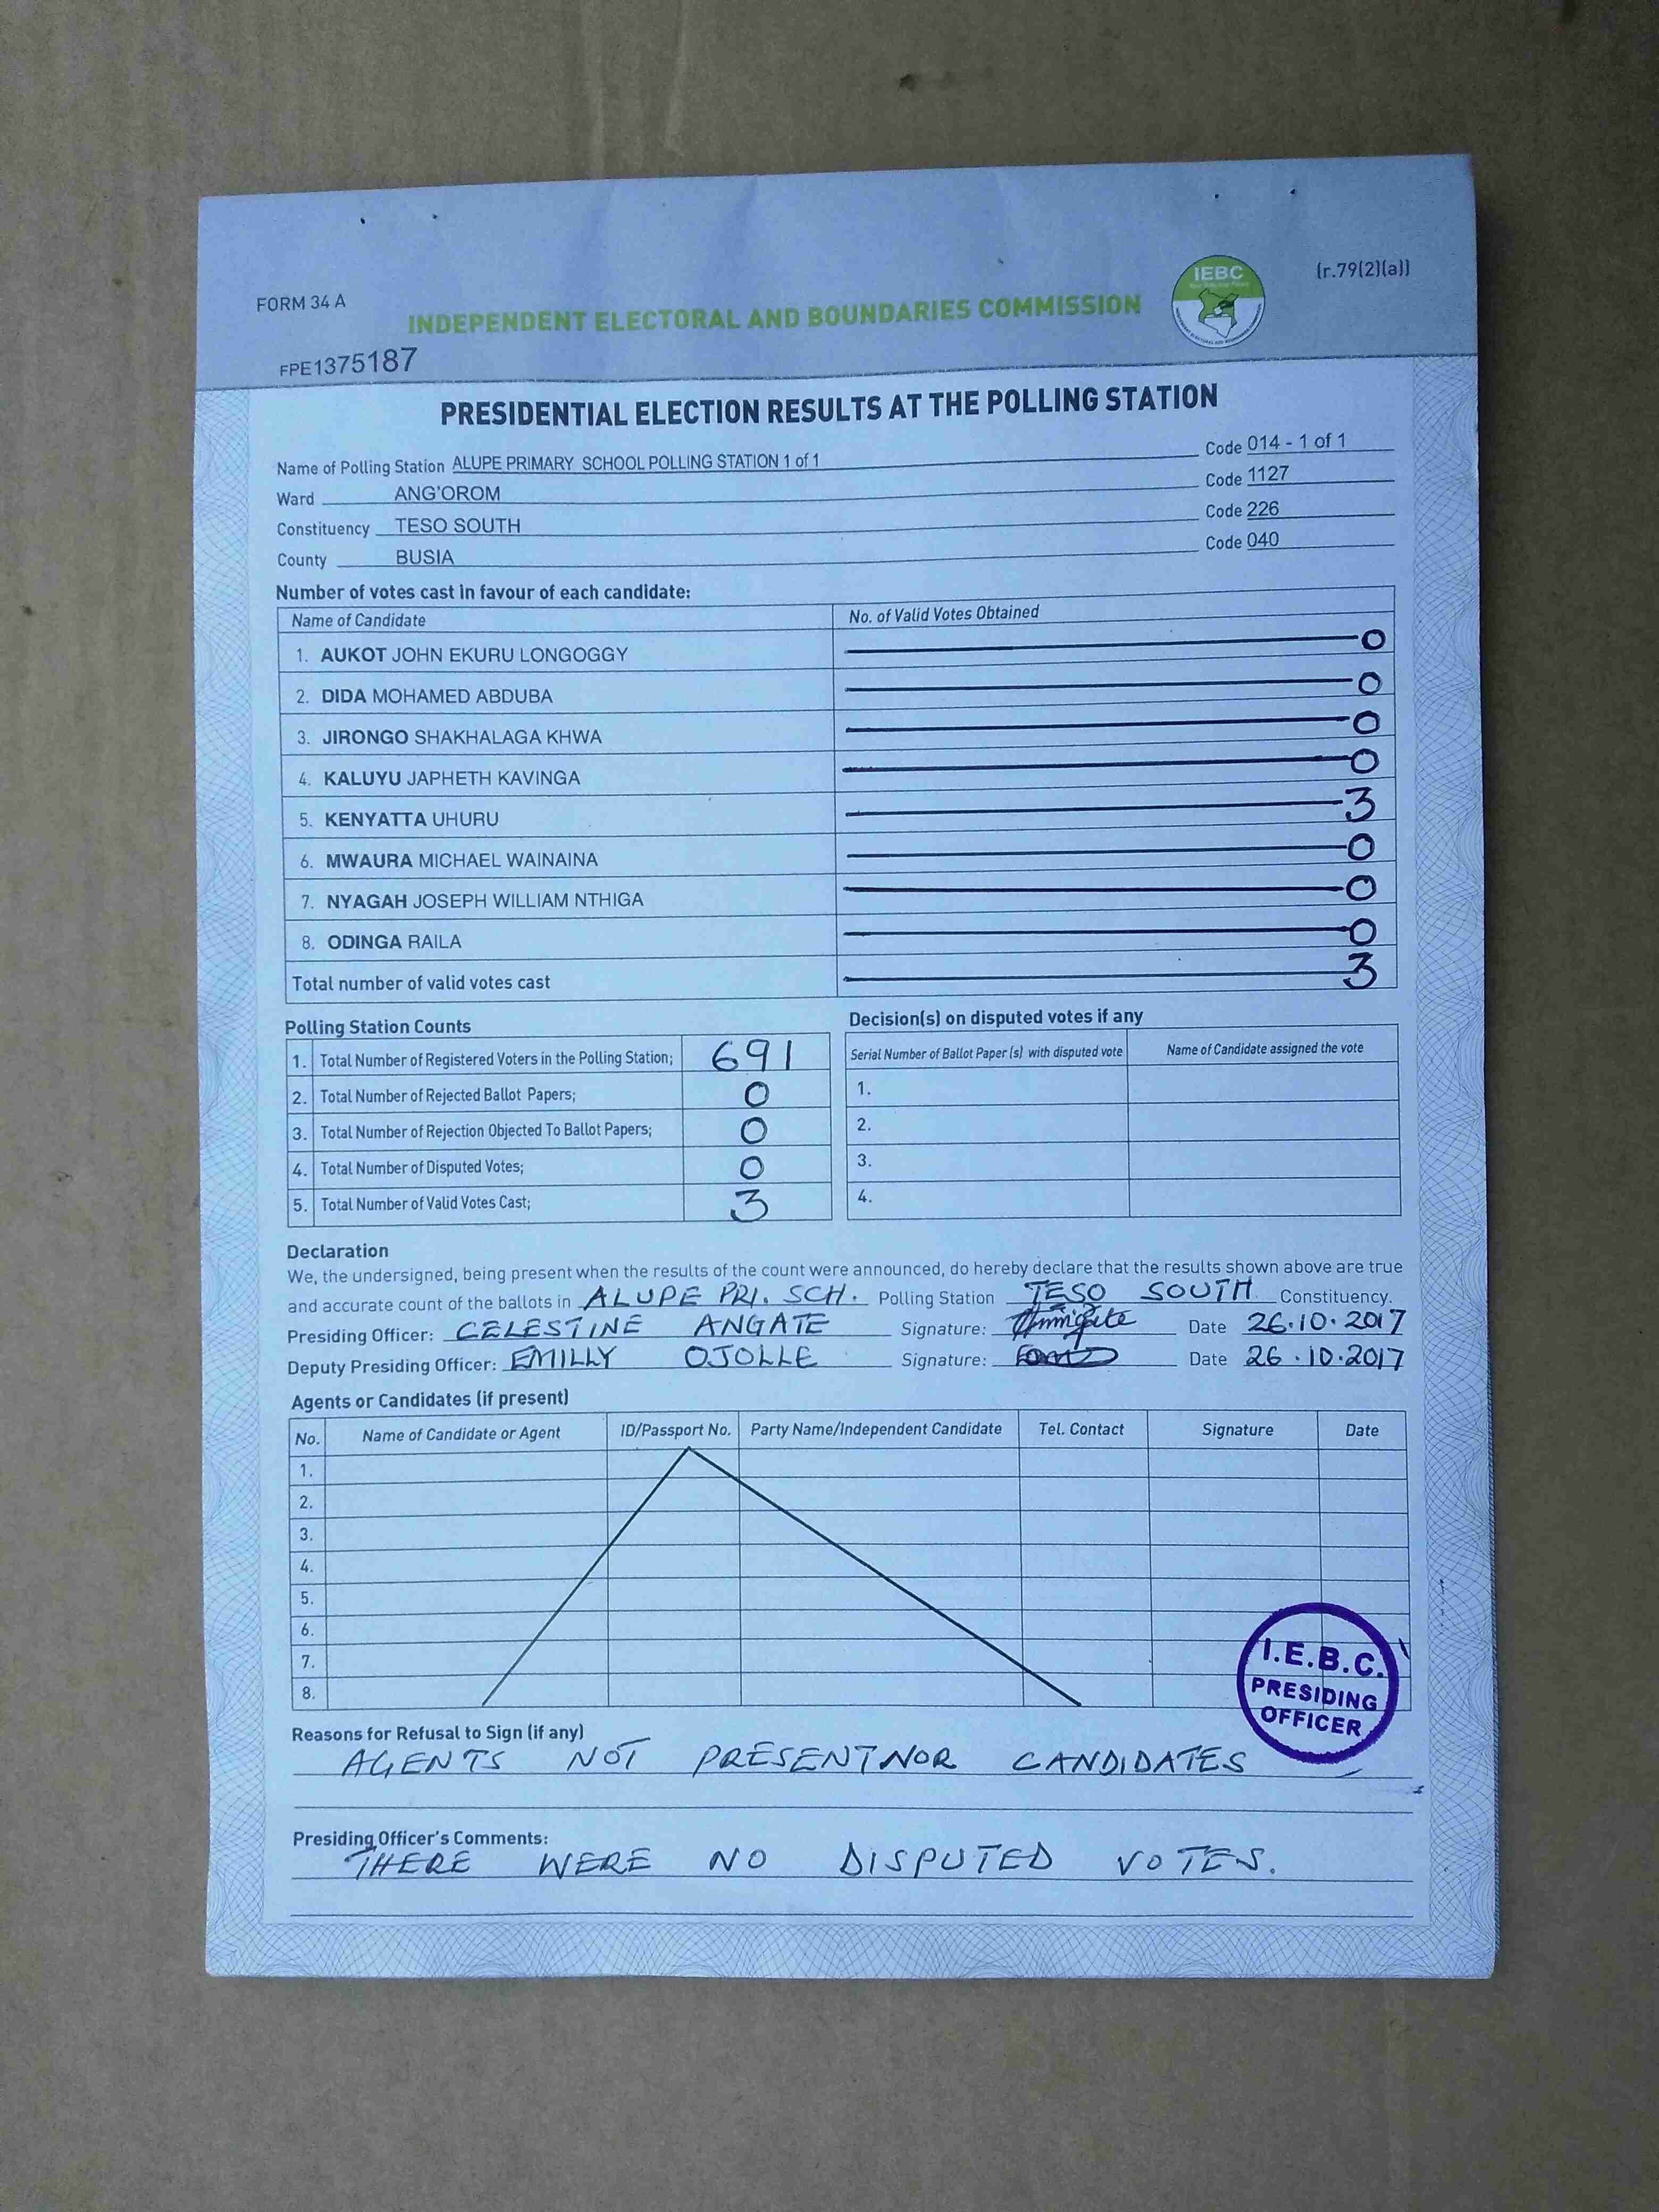 FORM 34 A
INDEPENDENT ELECTORAL AND BOUNDARIES COMMISSION
IEBC
(r.79(2)(a))
FPE1375187
PRESIDENTIAL ELECTION RESULTS AT THE POLLING STATION
Name of Polling Station ALUPE PRIMARY SCHOOL POLLING STATION 1 of 1 Code 014 - 1 of 1
Ward ANG'OROM Code 1127
Constituency TESO SOUTH Code 226
County BUSIA Code 040
Number of votes cast in favour of each candidate:
Name of Candidate No. of Valid Votes Obtained
1. AUKOT JOHN EKURU LONGOGGY 0
2. DIDA MOHAMED ABDUBA 0
3. JIRONGO SHAKHALAGA KHWA 0
4. KALUYU JAPHETH KAVINGA 0
5. KENYATTA UHURU 3
6. MWAURA MICHAEL WAINAINA 0
7. NYAGAH JOSEPH WILLIAM NTHIGA 0
8. ODINGA RAILA 0
Total number of valid votes cast 3
Polling Station Counts
1. Total Number of Registered Voters in the Polling Station; 691
2. Total Number of Rejected Ballot Papers; 0
3. Total Number of Rejection Objected To Ballot Papers; 0
4. Total Number of Disputed Votes; 0
5. Total Number of Valid Votes Cast; 3
Decision(s) on disputed votes if any
Serial Number of Ballot Paper (s) with disputed vote Name of Candidate assigned the vote
1.
2.
3.
4.
Declaration
We, the undersigned, being present when the results of the count were announced, do hereby declare that the results shown above are true
and accurate count of the ballots in ALUPE PRI. SCH. Polling Station TESO SOUTH Constituency.
Presiding Officer: CELESTINE ANGATE Signature: Date 26.10.2017
Deputy Presiding Officer: EMILLY OJOLLE Signature: Date 26.10.2017
Agents or Candidates (if present)
No. Name of Candidate or Agent ID/Passport No. Party Name/Independent Candidate Tel. Contact Signature Date
1.
2.
3.
4.
5.
6.
7.
8.
I.E.B.C.
PRESIDING
OFFICER
Reasons for Refusal to Sign (if any)
AGENTS NOT PRESENT NOR CANDIDATES
Presiding Officer's Comments:
THERE WERE NO DISPUTED VOTES.